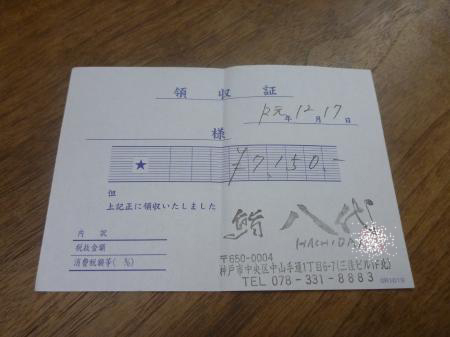 領収証
R元年12月17日
様
★ ¥7,150-
但
上記正に領収いたしました
鮨 八代
HACHIDAI
内訳
税抜金額
消費税額等( %)
〒650-0004
神戸市中央区中山手通1丁目6-7(三佳ビル1F北)
TEL 078-331-8883